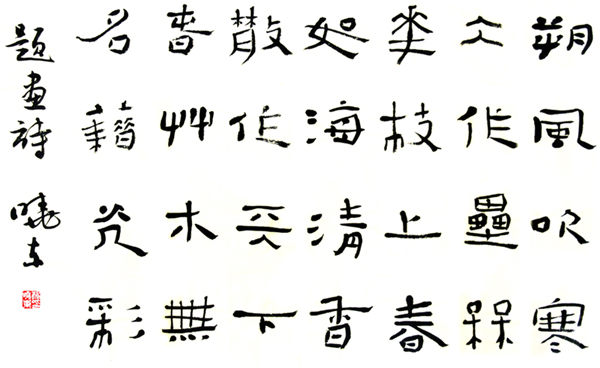 朔風吹寒
仌作壘槑
華枝上春
如海清香
散作天下
春艸木無
名藉光彩
題畫詩 曉东